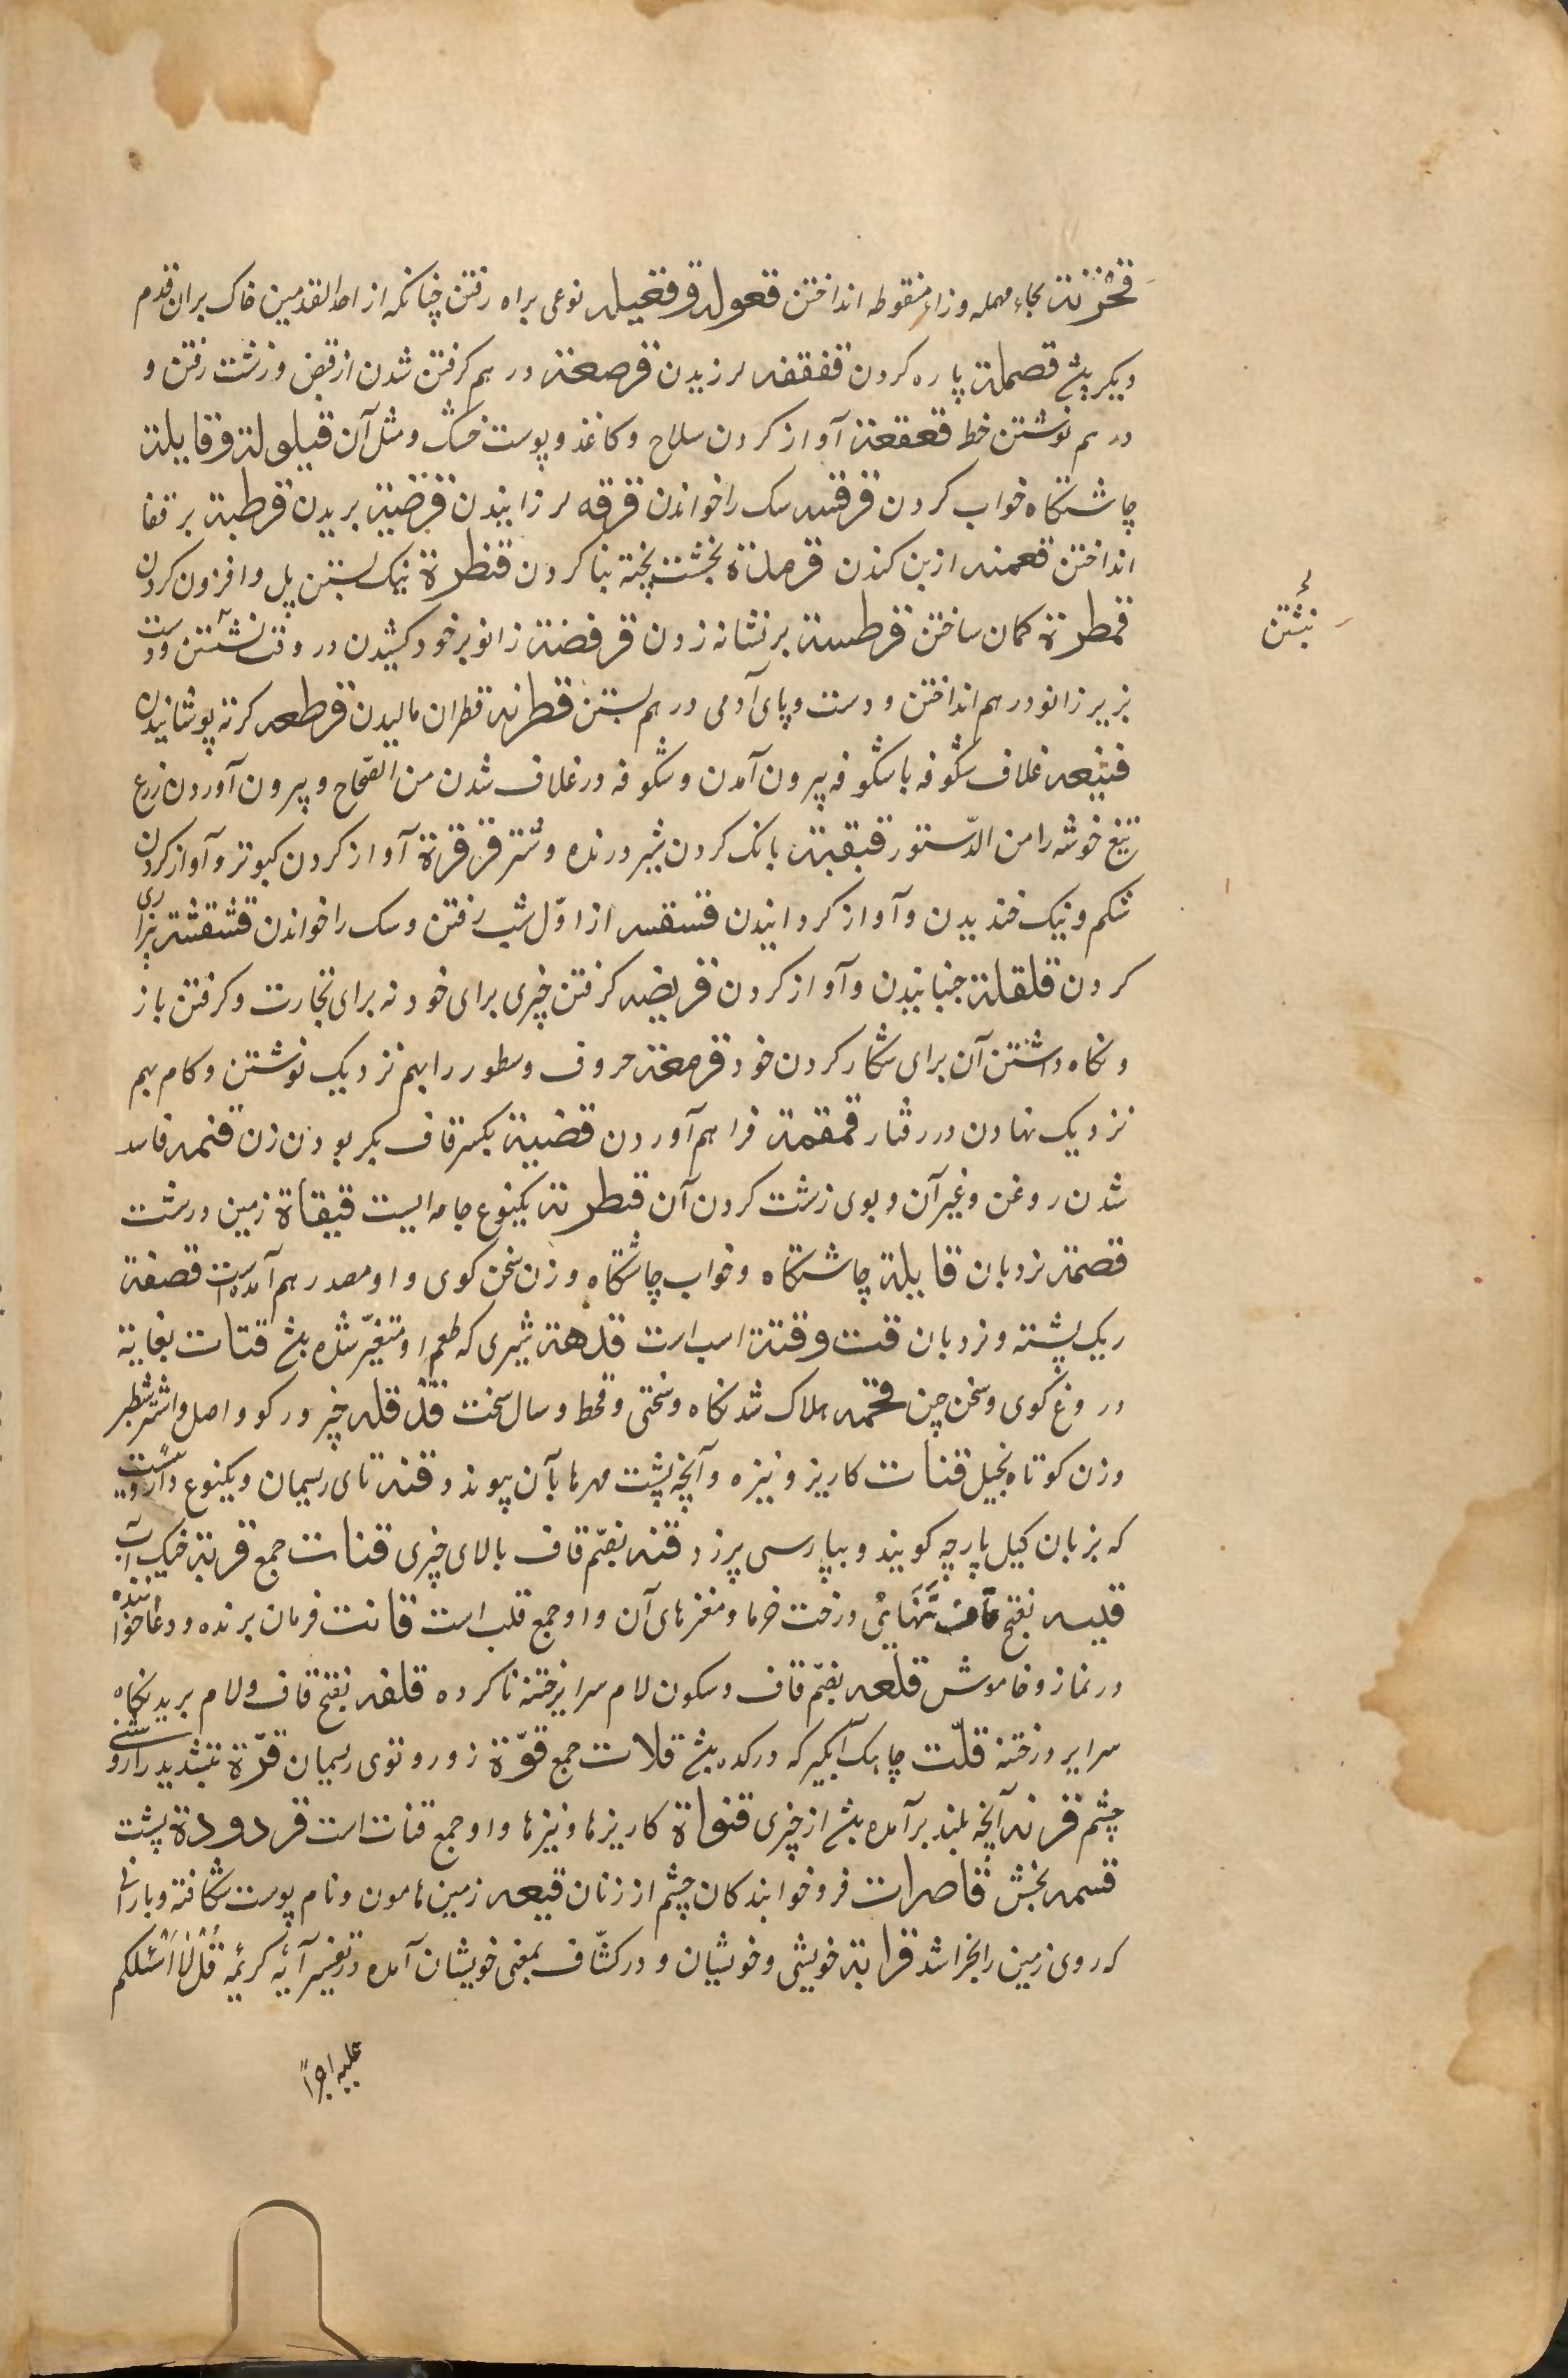 قحزنة بحاء مهمله وزاء منقوطه انداختن قعولة و قفعیله نوعی براه رفتن چنانکه از احد القدمین خاک بران قدم
دیگر پشد قصملة پاره کردن قفقفه لرزیدن قرصعة در هم کرفتن شدن از قبض و زشت رفتن و
در هم نوشتن خط قعقعة آواز کردن سلاح و کاغذ و پوست خشک و مثل آن قیلولة و قایلة
چاشتکاه خواب کردن قرقسه سک را خواندن قرقه لرزانیدن قرضبة بریدن قرطبة بر قفا
انداختن قعمنه از بن کندن قرملة بخشت پخته بنا کردن قنطرة نیک بستن پل و افزون کردن
قمطرة کمان ساختن قرطسة بر نشانه زدن قرفضة زانو بر خود کشیدن در وقت نشستن و دست
بزیر زانو در هم انداختن و دست و پای آدمی در هم بستن قطرنة قطران مالیدن قرطعه کرته پوشانیدن
قنبعه غلاف شکوفه با شکوفه بیرون آمدن و شکوفه در غلاف شدن من الصّحاح و بیرون آوردن زرع
تیغ خوشه را من الدّستور قبقبة بانک کردن شیر درنده و شتر قرقرة آواز کردن کبوتر و آواز کردن
شکم و نیک خندیدن و آواز کردانیدن قسقسه از اوّل شب رفتن و سک را خواندن قشقشة بیزاری
کردن قلقلة جنبانیدن و آواز کردن قریضه کرفتن چیزی برای خود نه برای تجارت و کرفتن باز
و نکاه داشتن آن برای شکار کردن خود قرمعة حروف و سطور را بهم نزدیک نوشتن و کام بهم
نزدیک نهادن در رفتار قمقمة فراهم آوردن قضیة بکسر قاف بکر بودن زن قنمه فاسد
شدن روغن و غیر آن و بوی زشت کردن آن قطرنة یکنوع جامه ایست قیقاة زمین درشت
قصمة نردبان قایلة چاشتکاه و خواب چاشتکاه و زن سخن کوی و او مصدر هم آمده است قصفة
ریک پشته و نردبان قت و قتة اسب است قدهة شیری که طعم او متغیّر شده بشد قتات بغایة
دروغ کوی و سخن چین قحمه هلاک شد نکاه و سختی و قحط و سال سخت
و زن کوتاه بخیل قنات کاریز و نیزه و آنچه پشت مهرها بآن پیوندد قنة تای ریسمان و یکنوع داروییست
که بزبان کیل بارچه کویند و بپارسی پرزد قنه بضمّ قاف بالای چیزی قنات جمع قربة خیک آب
قلبه بفتح قاف تنهایُ درخت خرما و مغزهای آن و او جمع قلب است قانت فرمان برنده و دعا خواننده
در نماز و خاموش قلعه بضمّ قاف و سکون لام سرایر ختنه ناکرده قلفه بفتح قاف و لام برید نکاه
قلّت چاهک آبکیر که در کده بشد قلات جمع قوّة زور و توی ریسمان قرّة بتشدید را روشنی
چشم قرنة آنچه بلند برآمده بشد از چیزی قنواة کاریزها و نیزها و او جمع قنات است قردودة پشت
قسمه بخش قاصرات فرو خوابندکان چشم از زنان قیعه زمین هامون و نام پوست شکافته و بارانی
که روی زمین را بخراشد قرابة خویشی و خویشان و در کشّاف بمعنی خویشان آمده در تفسیر آیهٔ کریمه قُل لا أسئلکم
علیه اجراً
نبشتن